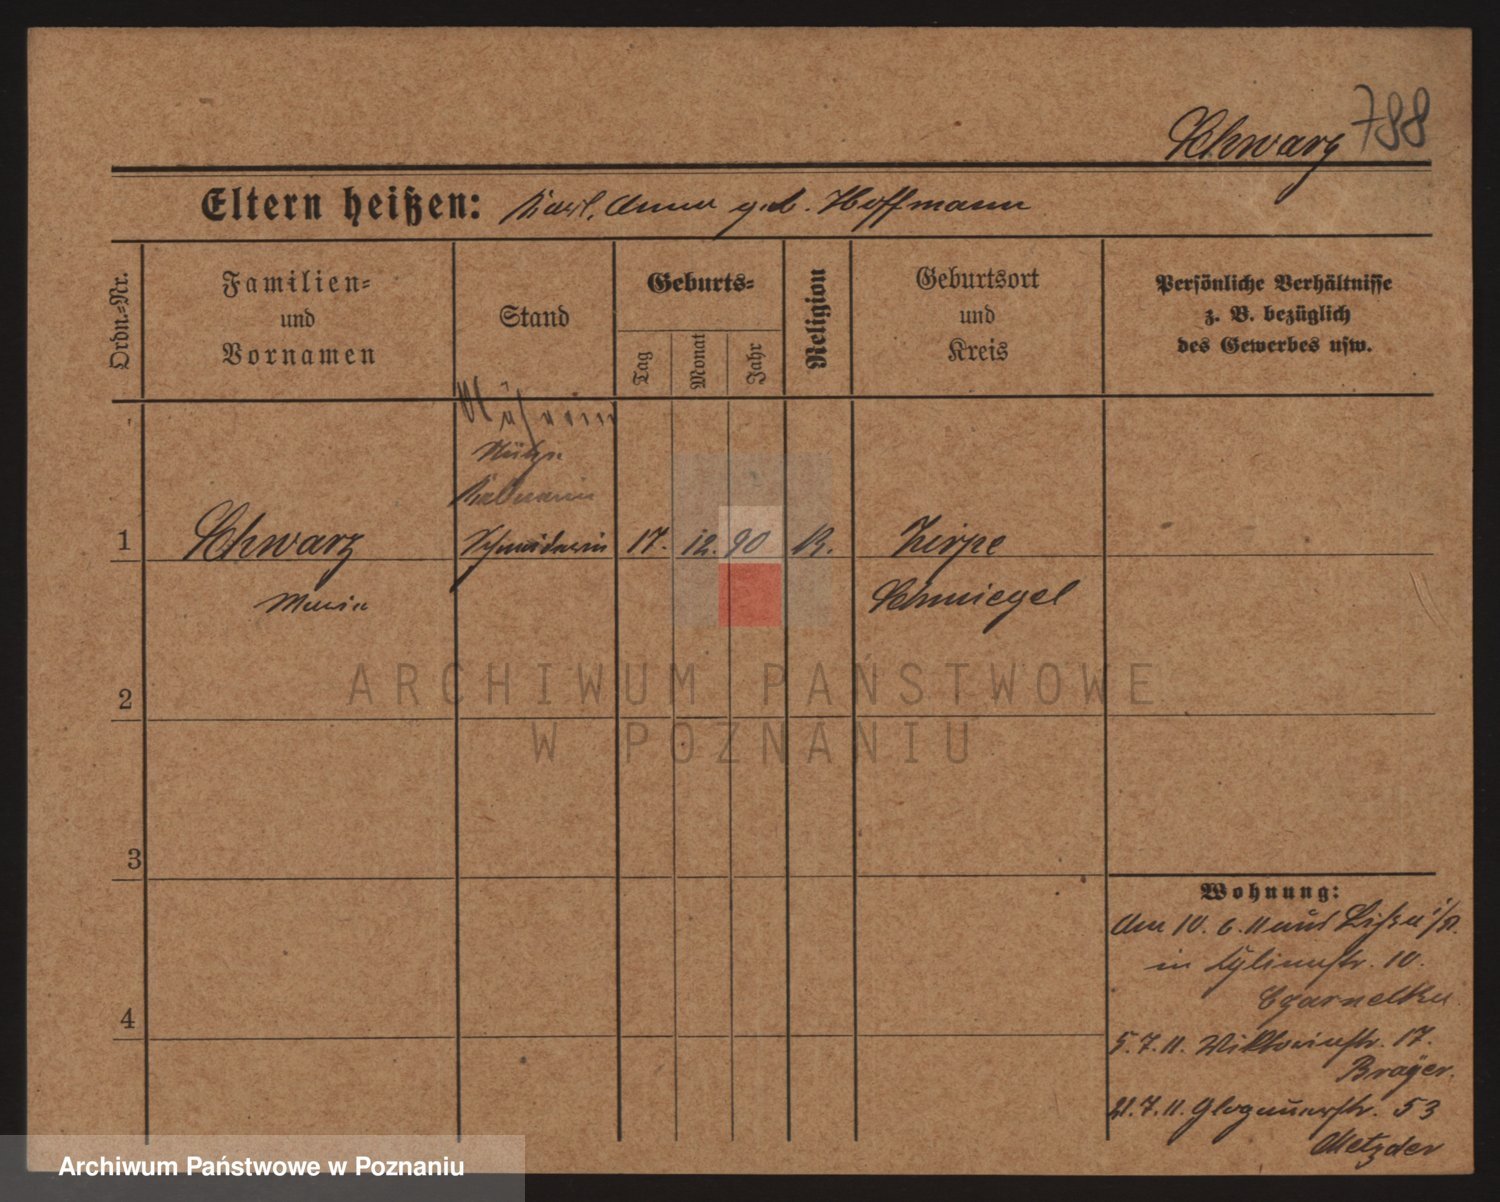 Schwarz 788
Eltern heißen: Karl, Anna geb. Hoffmann
Ordn.-Nr.
Familien-
und
Vornamen
Stand
Geburts-
Tag
Monat
Jahr
Religion
Geburtsort
und
Kreis
Persönliche Verhältnisse
z. B. bezüglich
des Gewerbes usw.
Näherin
Stütze
1 Schwarz Schneiderin 17. 12. 90 K. Zirpe
Maria Schmiegel
2
3
4
Wohnung:
Am 10. 6. 11 aus Lissa i/P.
in 10.
Czarnecka
5. 7. 11. Wiktoriastr. 17.
Brayer.
21. 7. 11. Glogauerstr. 53
Metzder
ARCHIWUM PAŃSTWOWE
W POZNANIU
Archiwum Państwowe w Poznaniu